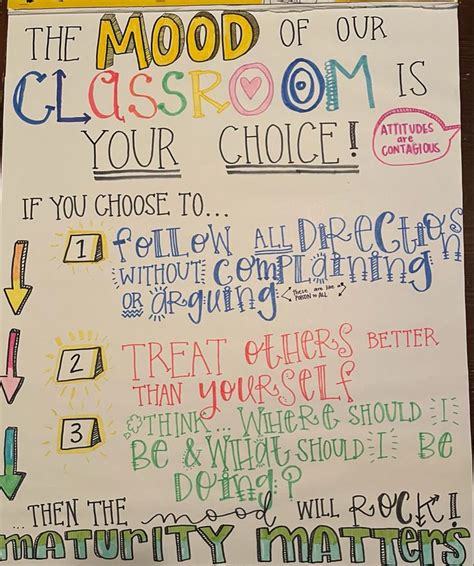 THE MOOD OF OUR
CLASSROOM IS
YOUR CHOICE!
ATTITUDES
are
CONTAGIOUS
IF YOU CHOOSE TO...
1 FOLLOW ALL DIRECTIONS
WITHOUT COMPLAINING
OR ARGUING
These are like a
POISON to ALL
2 TREAT OTHERS BETTER
THAN YOURSELF
3 THINK... WHERE SHOULD I
BE & WHAT SHOULD I BE
DOING?
... THEN THE mood WILL ROCK!
MATURITY MATTERS